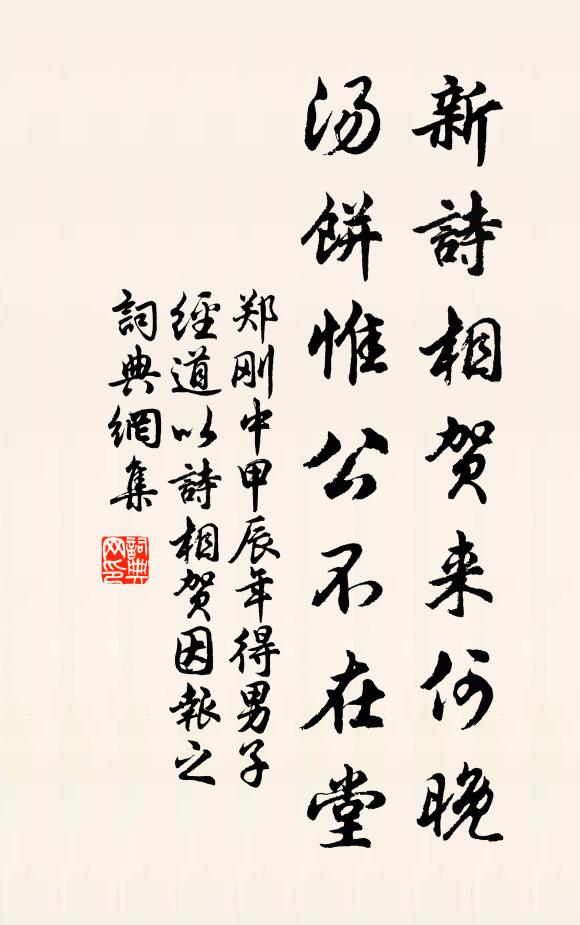 新詩相贺来何晚
汤餅惟公不在堂
郑刚中甲辰年得男子
經道以詩相贺因報之
詞典網集
詞典网印